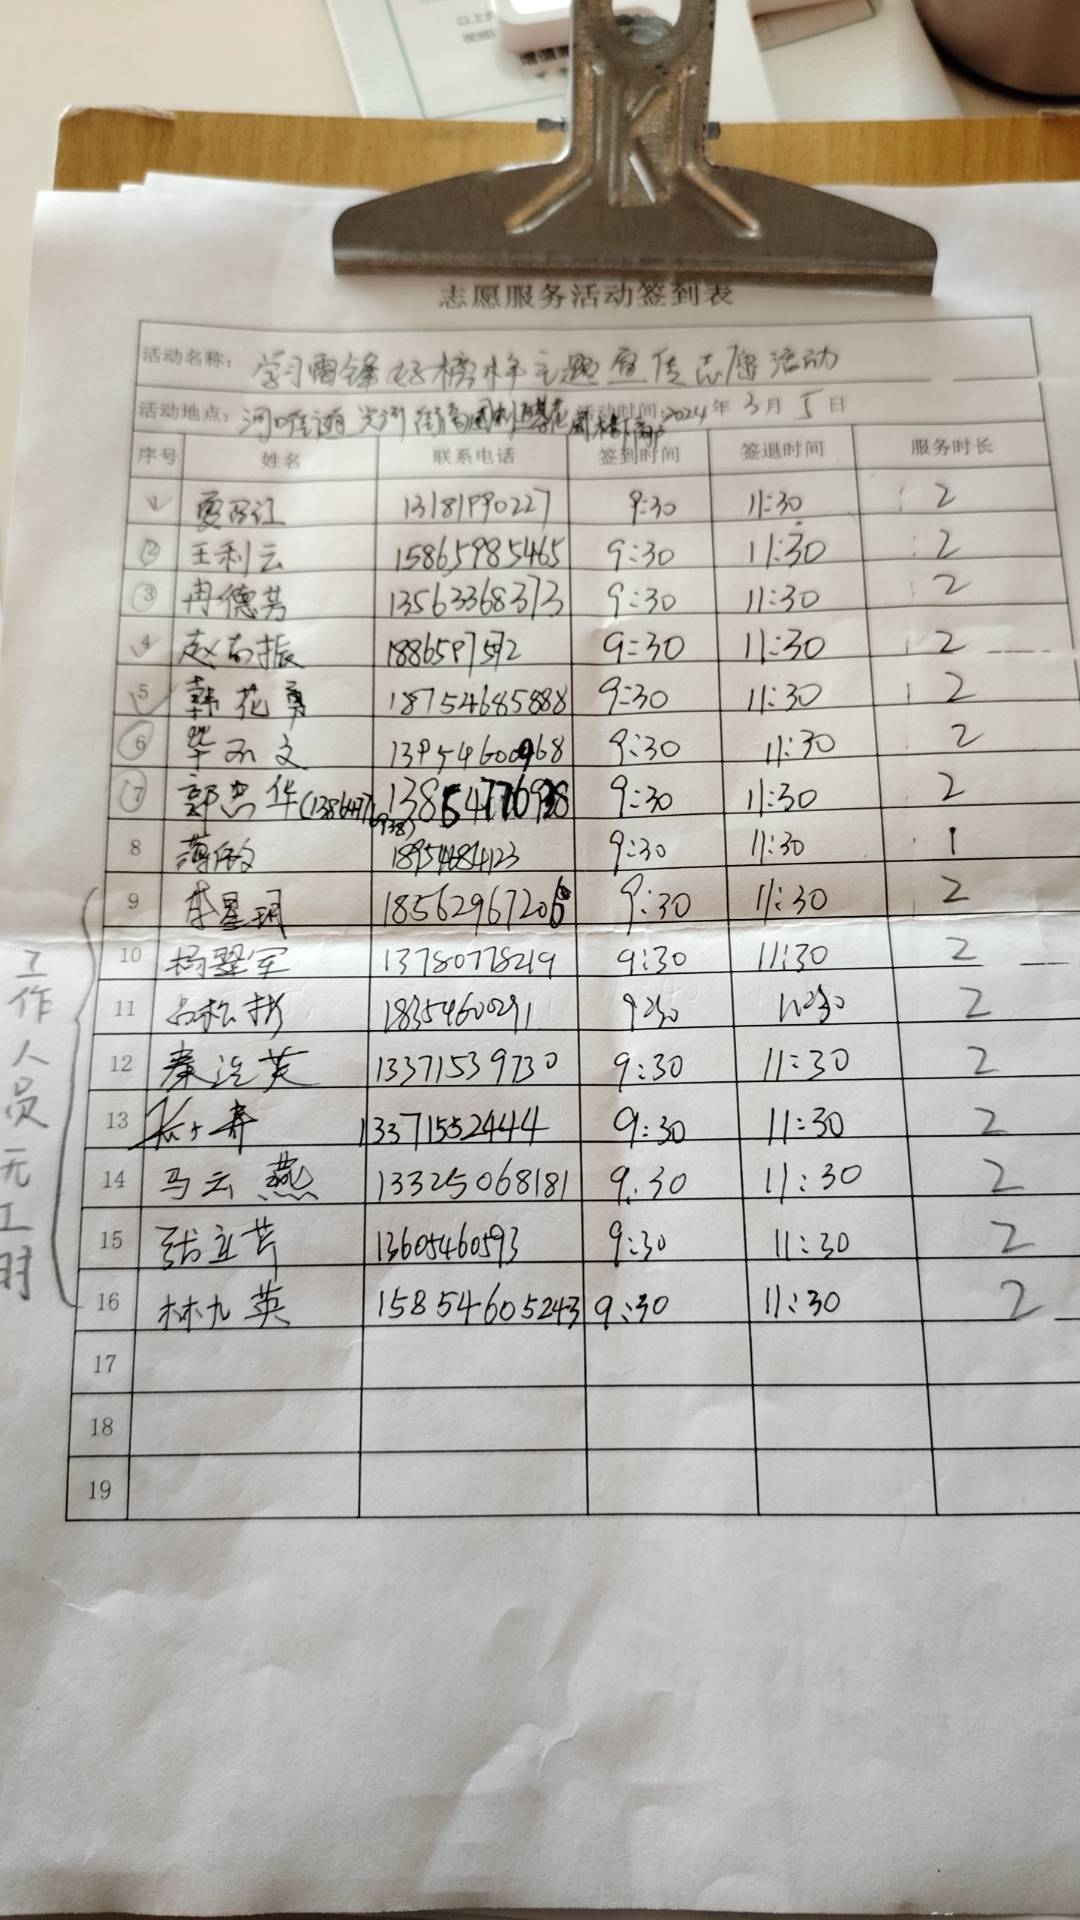 以上
志愿服务活动签到表
活动名称： 学习雷锋好榜样主题宣传志愿活动
活动地点： 河 活动时间：2024年3月5日
序号 姓名 联系电话 签到时间 签退时间 服务时长
1 13181990227 9:30 11:30 2
2 王利云 15865985465 9:30 11:30 2
3 冉德芳 13563368373 9:30 11:30 2
4 赵 振 9:30 11:30 2
5 韩花勇 18754685888 9:30 11:30 2
6 毕 文 13954600968 9:30 11:30 2
7 郭 华 9:30 11:30 2
8 9:30 11:30 1
9 李星珂 18562967206 9:30 11:30 2
10 杨翠军 13780778219 9:30 11:30 2
11 18354600291 9:30 2
12 秦 英 13371539730 9:30 11:30 2
13 13371552444 9:30 11:30 2
14 马云燕 13325068181 9:30 11:30 2
15 张立芹 13605460593 9:30 11:30 2
16 林九英 15854605243 9:30 11:30 2
17
18
19
工作人员无工时